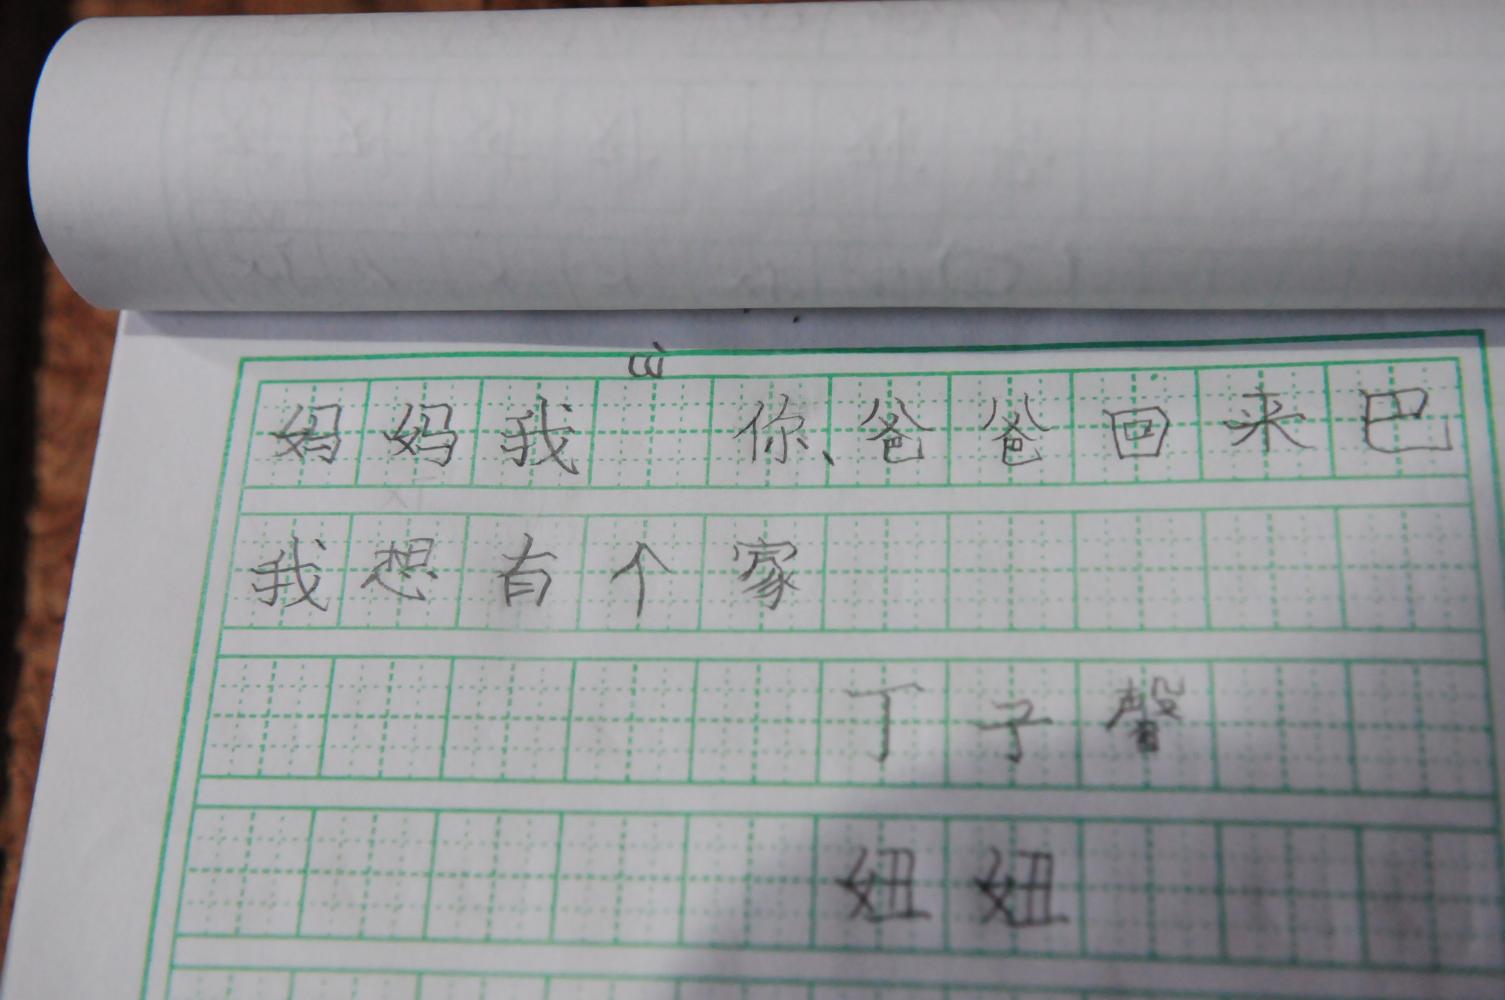 妈妈我 你、爸爸回来巴
我想有个家
丁子馨
妞妞